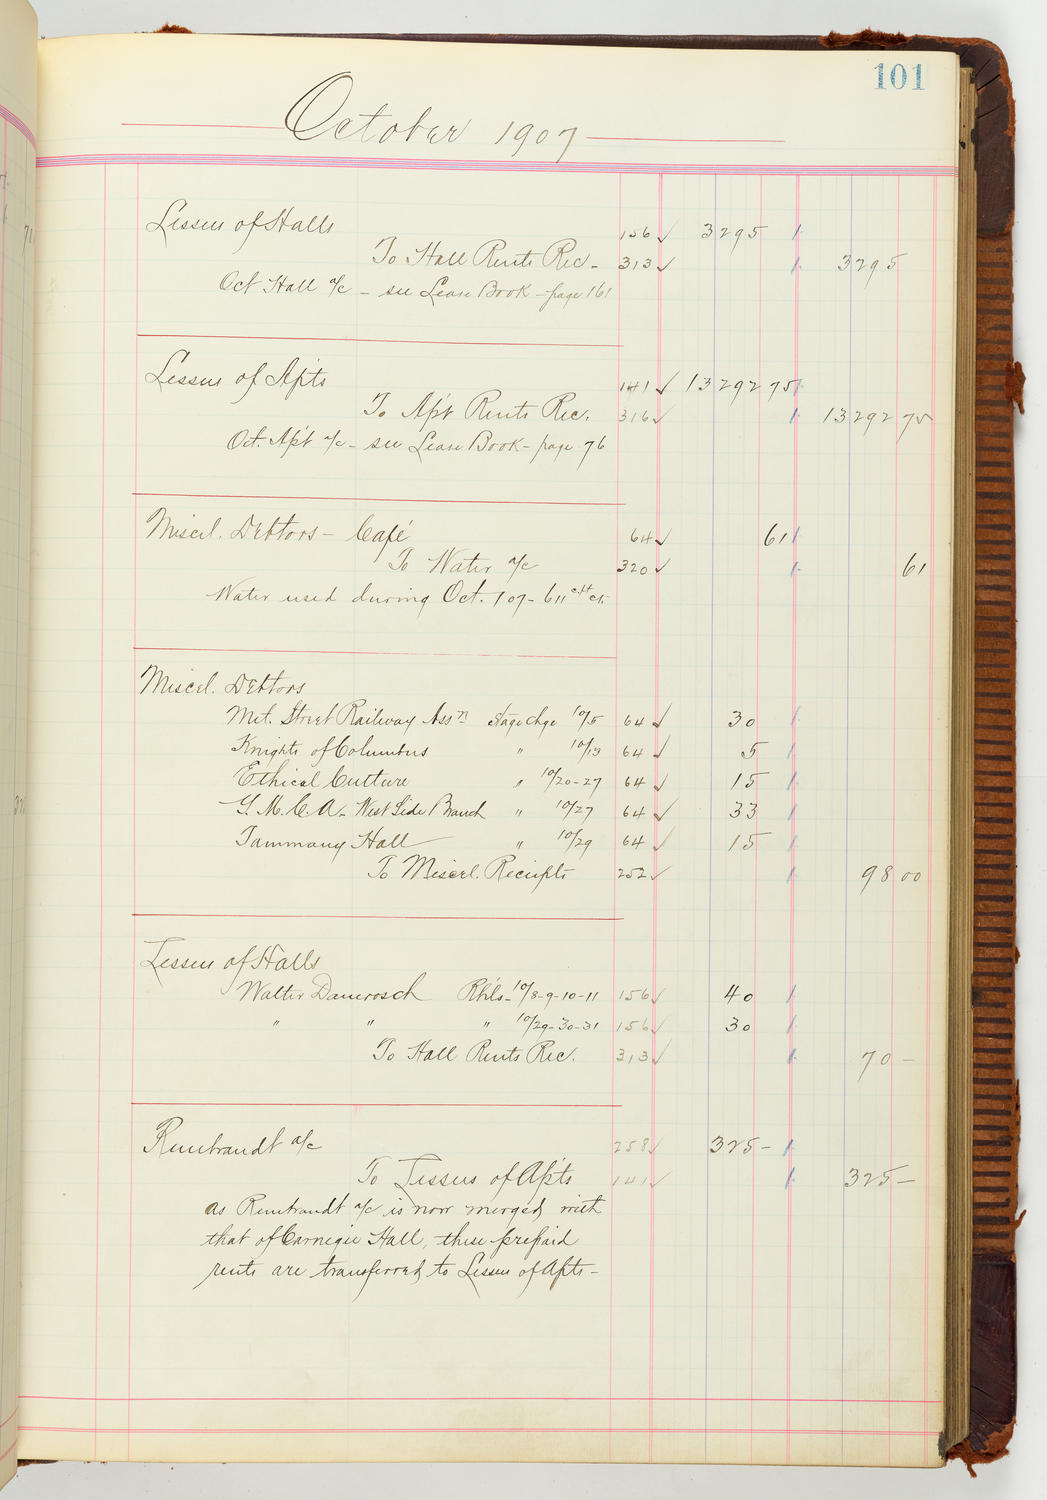 101
October 1907
Lessees of Halls 156 ✓ 3295
To Hall Rents Rec. 313 ✓ 3295
Oct Hall a/c - see Lease Book - page 161
Lessees of Apts 141 ✓ 13292 75
To Ap't Rents Rec. 316 ✓ 13292 75
Oct. Ap't a/c - see Lease Book - page 76
Miscel. Debtors - Café 64 ✓ 61
To Water a/c 320 ✓ 61
Water used during Oct. '07 - 611
Miscel. Debtors
Met. Street Railway Ass'n Stage Chge 10/5 64 ✓ 30
Knights of Columbus " 10/13 64 ✓ 5
Ethical Culture " 10/20-27 64 ✓ 15
Y. M. C. A. - West Side Branch " 10/27 64 ✓ 33
Tammany Hall " 10/29 64 ✓ 15
To Miscel. Receipts 252 ✓ 98 00
Lessees of Halls
Walter Damrosch Rhls - 10/8-9-10-11 156 ✓ 40
" " " 10/29-30-31 156 ✓ 30
To Hall Rents Rec. 313 ✓ 70 -
Rembrandt a/c 258 ✓ 325 -
To Lessees of Apts 141 ✓ 325 -
as Rembrandt a/c is now merged with
that of Carnegie Hall, these prepaid
rents are transferred to Lessees of Apts -